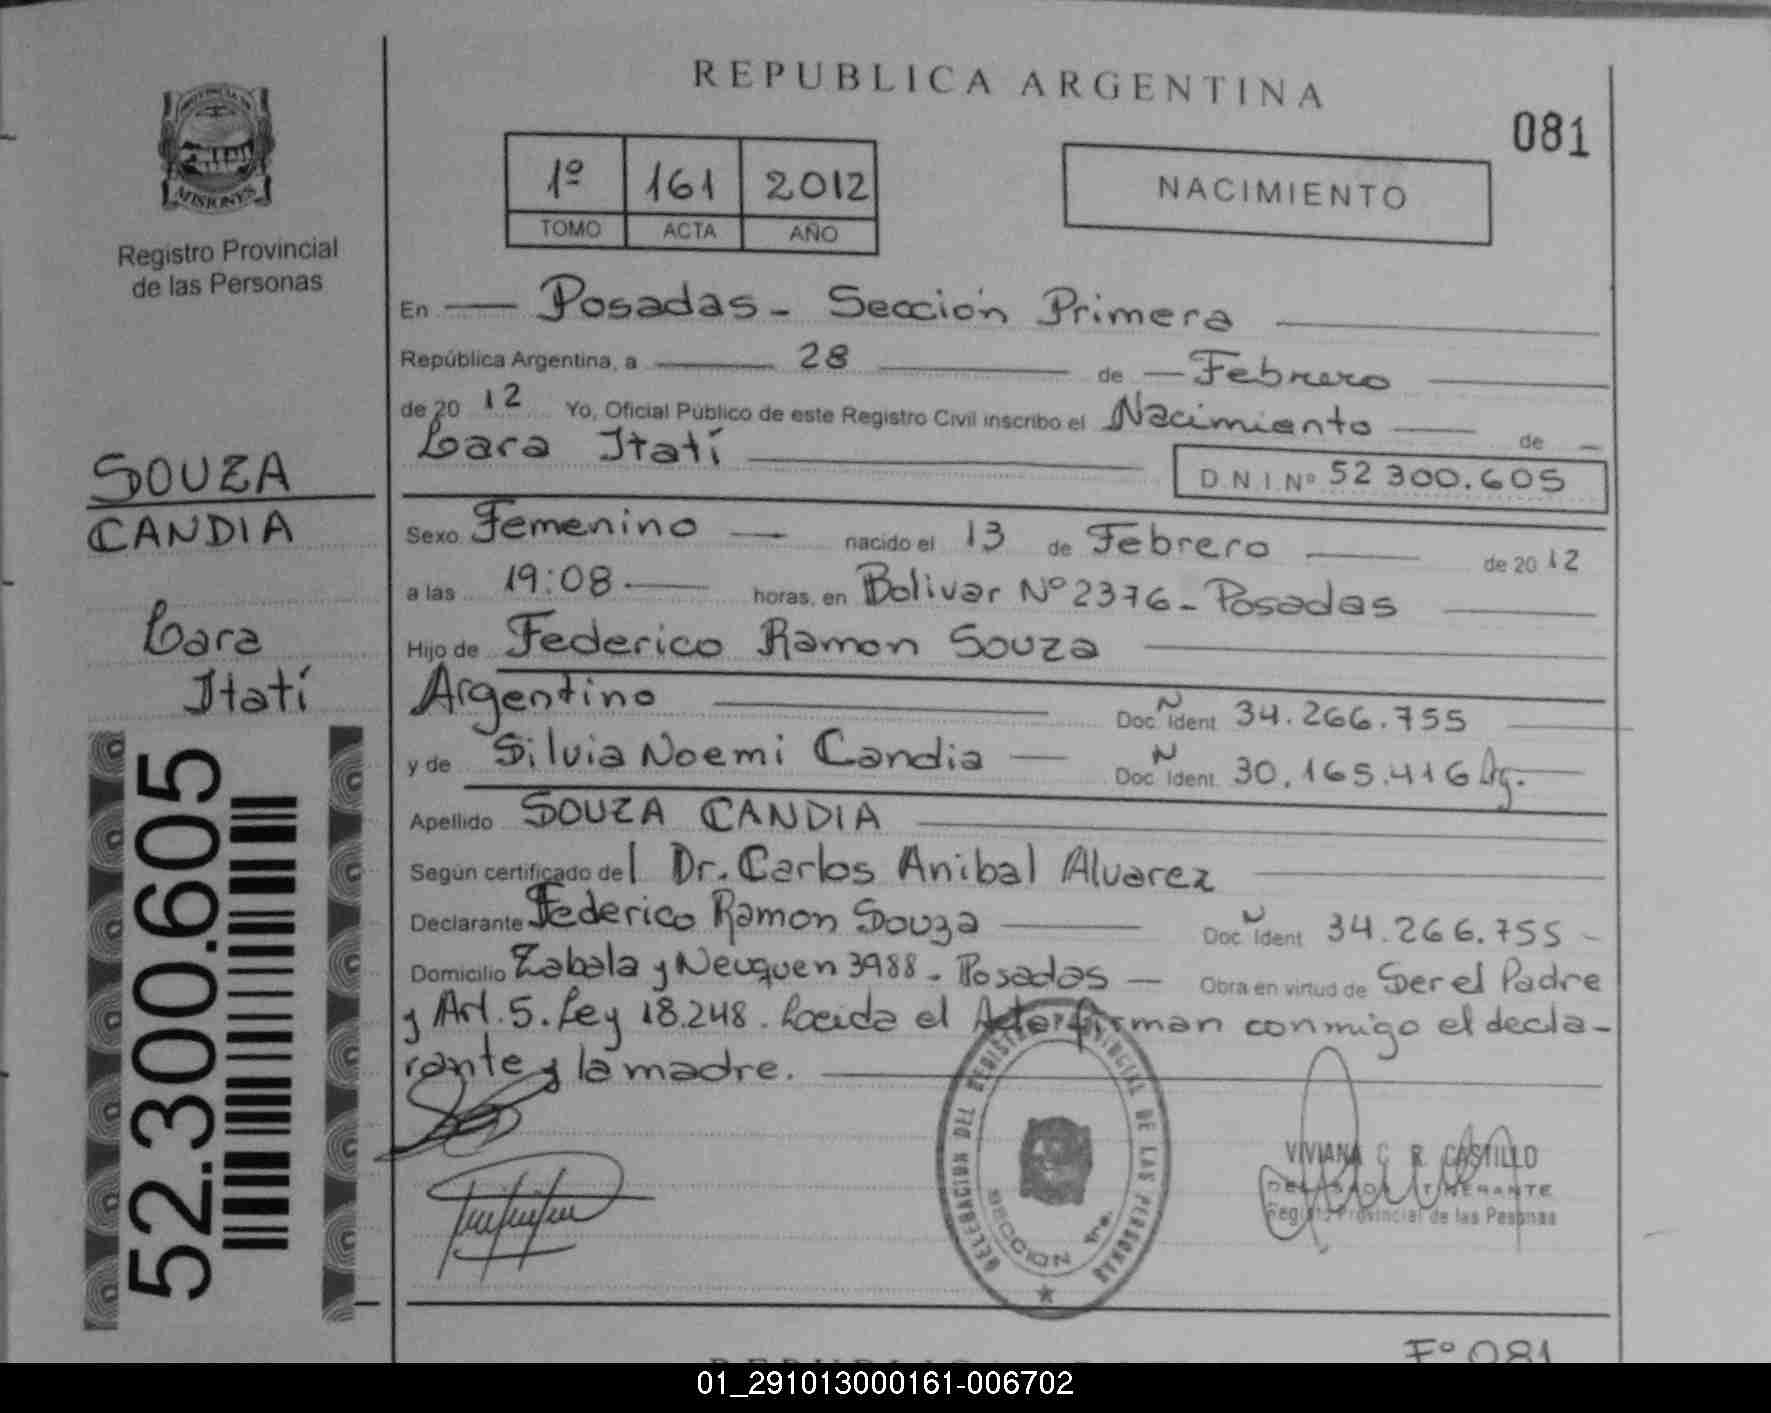 REPUBLICA ARGENTINA
081
PROVINCIA DE
MISIONES
Registro Provincial
de las Personas
1º 161 2012
TOMO ACTA AÑO
NACIMIENTO
En Posadas - Sección Primera
República Argentina, a 28 de Febrero
de 2012 Yo, Oficial Público de este Registro Civil inscribo el Nacimiento de
Lara Itatí
D.N.I. Nº 52 300.605
SOUZA
CANDIA
Lara
Itatí
52.300.605
Sexo Femenino nacido el 13 de Febrero de 2012
a las 19:08 horas, en Bolivar Nº 2376 - Posadas
Hijo de Federico Ramon Souza
Argentino Doc. Ident. 34.266.755
y de Silvia Noemi Candia Doc. Ident. 30.165.416 Ag.
Apellido SOUZA CANDIA
Según certificado del Dr. Carlos Anibal Alvarez
Declarante Federico Ramon Souza Doc. Ident. 34.266.755 -
Domicilio Zabala y Neuquen 3988 - Posadas - Obra en virtud de Ser el Padre
y Art. 5. Ley 18.248. Leida el Acta firman conmigo el decla-
rante y la madre.
DELEGACION DEL REGISTRO PROVINCIAL DE LAS PERSONAS
SECCION 1ra.
VIVIANA C. R. CASTILLO
Registro Provincial de las Personas
Fº 081
01_291013000161-006702